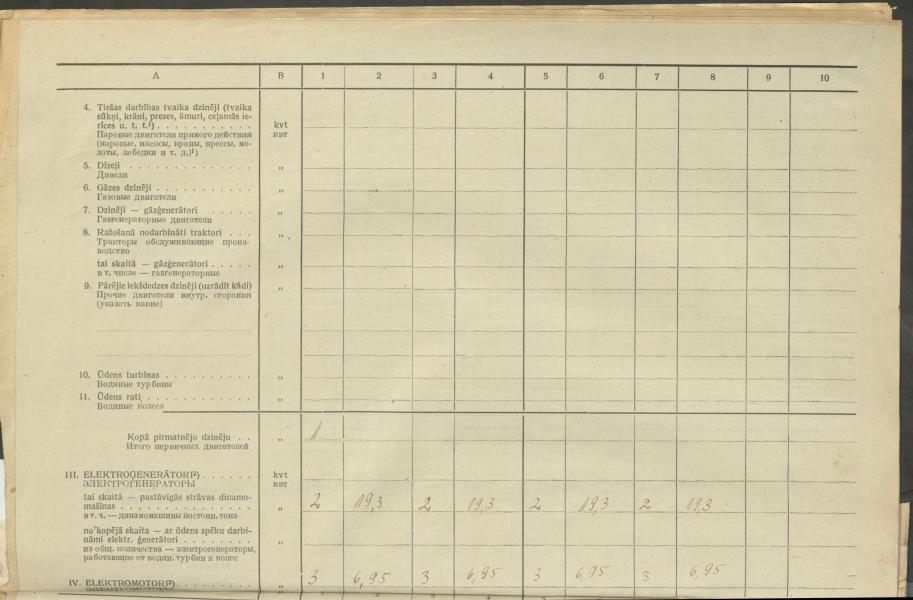 A B 1 2 3 4 5 6 7 8 9 10
4. Tiešas darbības tvaika dzinēji (tvaika
sūkņi, krāni, preses, āmuri, ceļamās ie-
rīces u. t. t.¹) . . . . . . . . . . . kvt
Паровые двигатели прямого действия квт
(паровые, насосы, краны, прессы, мо-
лоты, лебедки и т. д.)¹)
5. Dīzeļi . . . . . . . . . . . . . „
Дизели
6. Gāzes dzinēji . . . . . . . . . . „
Газовые двигатели
7. Dzinēji — gāzģenerātori . . . . . „
Газгенераторные двигатели
8. Ražošanā nodarbināti traktori . . . „
Тракторы обслуживающие произ-
водство
tai skaitā — gāzģenerātori . . . . . „
в т. числе — газгенераторные
9. Pārējie iekšdedzes dzinēji (uzrādīt kādi) „
Прочие двигатели внутр. сгорания
(указать какие)
10. Ūdens turbīnas . . . . . . . . . „
Водяные турбины
11. Ūdens rati . . . . . . . . . . . „
Водяные колеса
Kopā pirmatnējo dzinēju . . „ 1
Итого первичных двигателей
III. ELEKTROĢENERĀTORI²) . . . . . . kvt
ЭЛЕКТРОГЕНЕРАТОРЫ квт
tai skaitā — pastāvīgās strāvas dinamo-
mašīnas . . . . . . . . . . . . . „ 2 19,3 2 19,3 2 19,3 2 19,3
в т. ч. — динамомашины постоян. тока
no kopējā skaita — ar ūdens spēku darbi-
nāmi elektr. ģenerātori . . . . . . . . „
из общ. количества — электрогенераторы,
работающие от водян. турбин и колес
IV. ELEKTROMOTORI²) . . . . . . . . . „ 3 6,95 3 6,95 3 6,95 3 6,95 —